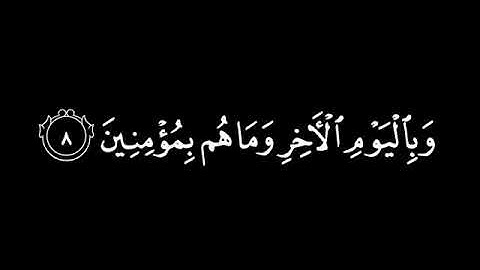 وَبِٱلْيَوْمِ ٱلْأَخِرِ وَمَا هُم بِمُؤْمِنِينَ ٨